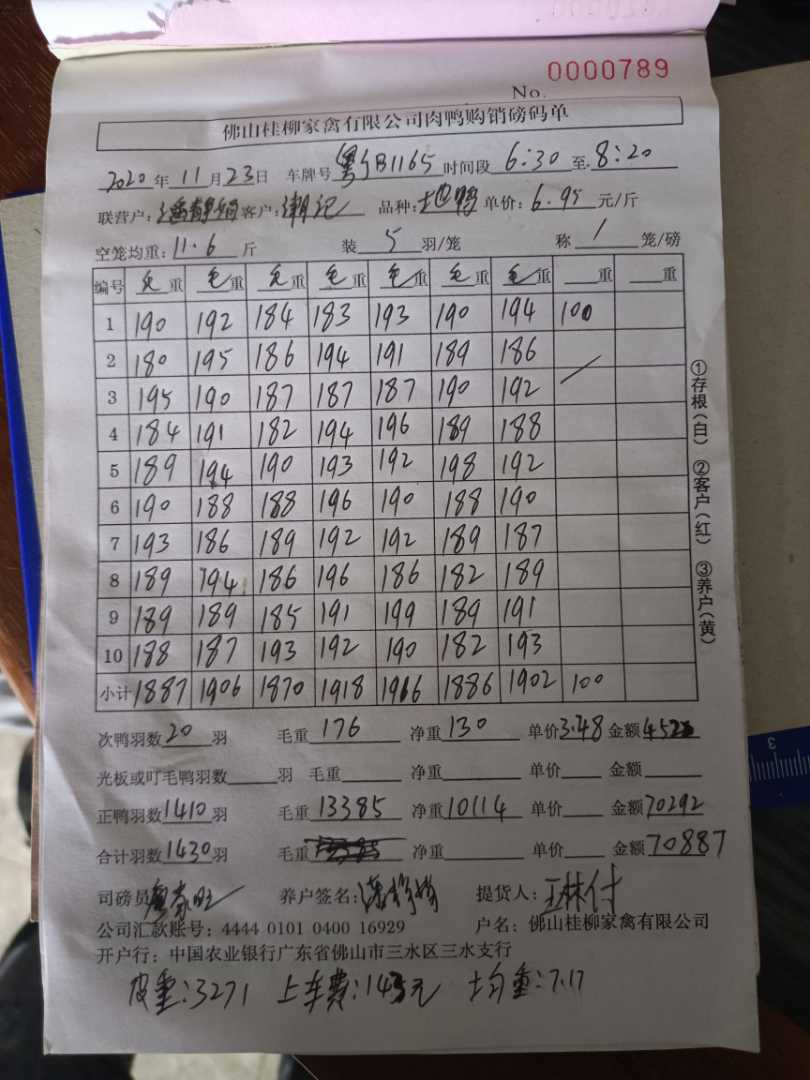 0000789
No.
佛山桂柳家禽有限公司肉鸭购销磅码单
2020年11月23日 车牌号 粤B1165 时间段 6:30 至 8:20
联营户: 客户:潮记 品种: 单价:6.95元/斤
空笼均重:11.6斤 装5羽/笼 称1笼/磅
编号 毛重 毛重 毛重 毛重 毛重 毛重 毛重 重 重
1 190 192 184 183 193 190 194 100
2 180 195 186 194 191 189 186
3 195 190 187 187 187 190 192
4 184 191 182 194 196 189 188
5 189 194 190 193 192 198 192
6 190 188 188 196 190 188 190
7 193 186 189 192 192 189 187
8 189 194 186 196 186 182 189
9 189 189 185 191 199 189 191
10 188 187 193 192 190 182 193
小计 1887 1906 1870 1918 1916 1886 1902 100
次鸭羽数20羽 毛重176 净重130 单价3.48 金额452
光板或叮毛鸭羽数 羽 毛重 净重 单价 金额
正鸭羽数1410羽 毛重13385 净重10114 单价 金额70292
合计羽数1430羽 毛重 净重 单价 金额70887
司磅员 养户签名: 提货人:
公司汇款账号:4444 0101 0400 16929 户名:佛山桂柳家禽有限公司
开户行:中国农业银行广东省佛山市三水区三水支行
皮重:3271 上车费:143元 均重:7.17
①存根(白) ②客户(红) ③养户(黄)
3